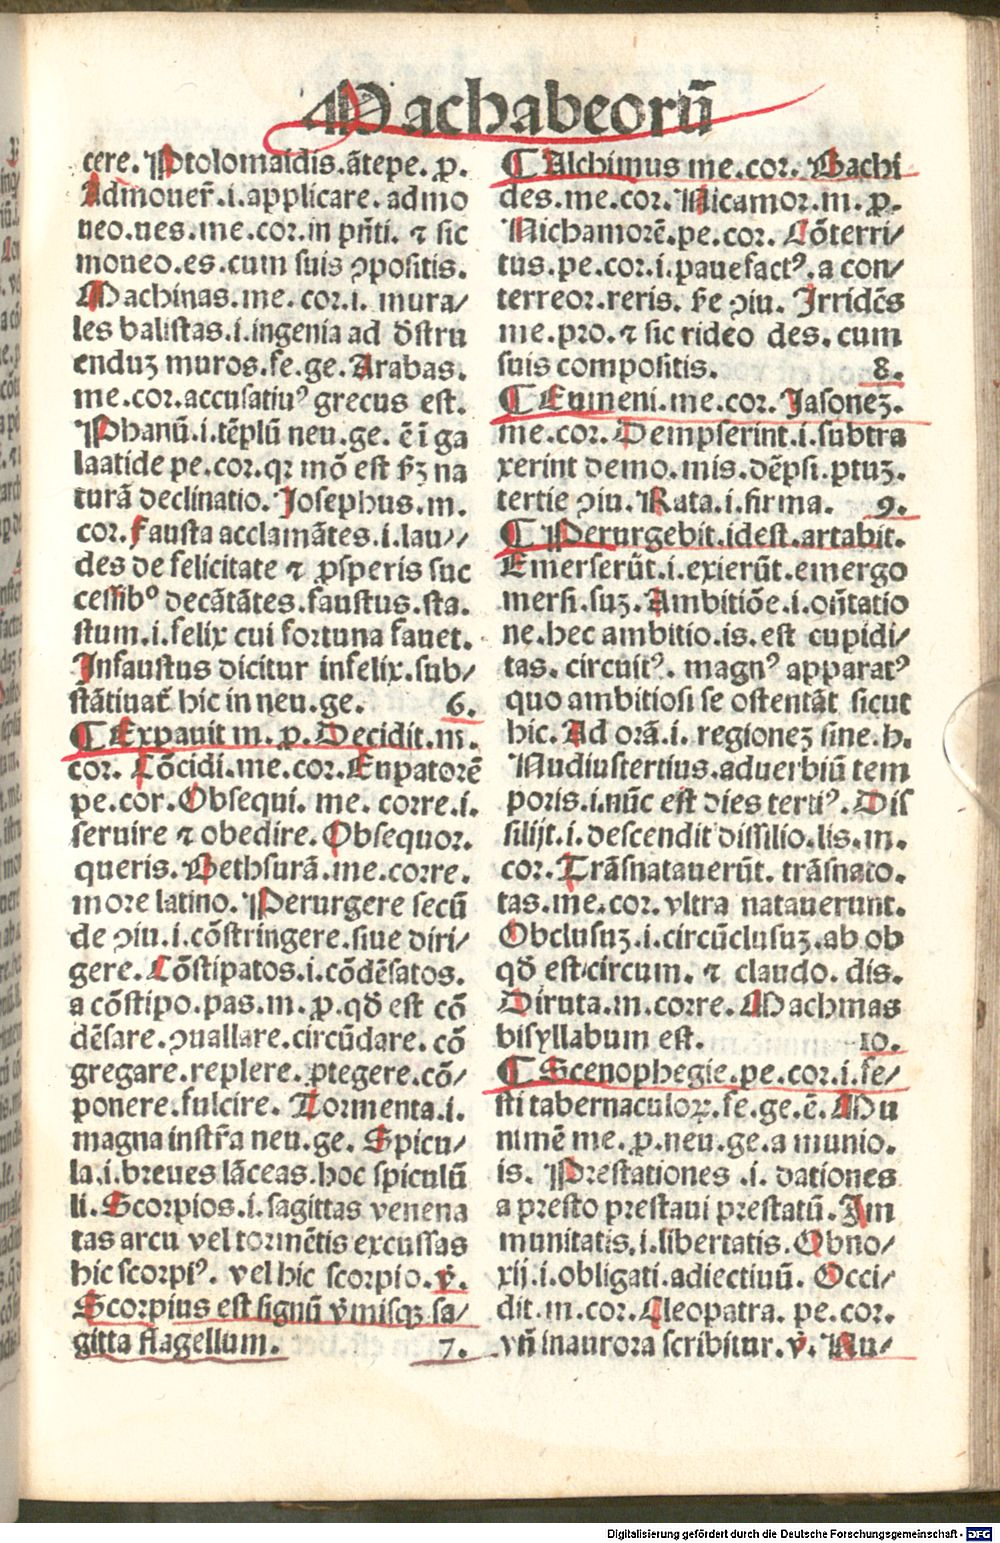 Machabeorũ
cere. Ptolomaidis. ãtepe. ꝑ.
Admouer̃. i. applicare. admo
neo. nes. me. cor. in pñti. ⁊ sic
moneo. es. cum suis ꝯpositis.
Machinas. me. cor. i. mura/
les balistas. i. ingenia ad dr̃stru
enduȝ muros. fe. ge. Arabas.
me. cor. accusatiuꝰ grecus est.
Phanũ. i. tẽplũ neu. ge. ẽ ĩ ga
laatide pe. cor. qꝛ mõ est hȝ na
turã declinatio. Josephus. m.
cor. Fausta acclamãtes. i. lau//
des de felicitate ⁊ ꝓsperis suc
cessibꝰ decãtãtes. faustus. sta.
stum. i. felix cui fortuna fauet.
Infaustus dicitur infelix. sub/
stãtiuat̃ hic in neu. ge. 6.
¶ Expauit m. ꝑ. Decidit. m.
cor. Cõcidi. me. cor. Eupatorẽ
pe. cor. Obsequi. me. corre. i.
seruire ⁊ obedire. Obsequor.
queris. Bethsurã. me. corre.
more latino. Perurgere secũ
de ꝯiu. i. cõstringere. siue diri/
gere. Cõstipatos. i. cõdẽsatos.
a cõstipo. pas. m. ꝑ. qđ est cõ
dẽsare. ꝯuallare. circũdare. cõ
gregare. replere. ꝓtegere. cõ/
ponere. fulcire. Tormenta. i.
magna instr̃a neu. ge. Spicu/
la. i. breues lãceas. hoc spiculũ
li. Scorpios. i. sagittas venena
tas arcu vel tormẽtis excussas
hic scorpiꝰ. vel hic scorpio. v̾.
Scorpius est signũ v̾misqȝ sa/
gitta flagellum. 7.
¶ Alchimus me. cor. Bachi
des. me. cor. Nicamor. m. ꝑ.
Nichamorẽ. pe. cor. Cõterri/
tus. pe. cor. i. pauefactꝰ. a con/
terreor. reris. ꝯiu. Irridẽs
me. pro. ⁊ sic rideo des. cum
suis compositis. 8.
¶ Eumeni. me. cor. Jasoneȝ.
me. cor. Dempserint. i. subtra
xerint demo. mis. dẽpsi. ptuȝ.
tertie ꝯiu. Rata. i. firma. 9.
¶ Perurgebit. idest. artabit.
Emerserũt. i. exierũt. emergo
mersi. suȝ. Ambitiõe. i. oñtatio
ne. hec ambitio. is. est cupidi/
tas. circuitꝰ. magnꝰ apparatꝰ
quo ambitiosi se ostentãt sicut
hic. Ad orã. i. regioneȝ sine. h.
Nudiustertius. aduerbiũ tem
poris. i. nũc est dies tertiꝰ. Dis
silijt. i. descendit dissilio. lis. m.
cor. Trãsnatauerũt. trãsnato.
tas. me. cor. vltra natauerunt.
Obclusuȝ. i. circũclusuȝ. ab ob
qđ est circum. ⁊ claudo. dis.
Diruta. m. corre. Machmas
bisyllabum est. 10.
¶ Scenophegie. pe. cor. i. fe/
sti tabernaculoꝝ. fe. ge. ẽ. Mu
nimẽ me. ꝑ. neu. ge. a munio.
is. Prestationes .i. dationes
a presto prestaui prestatũ. Im
munitatis. i. libertatis. Obno/
xij. i. obligati. adiectiuũ. Occi
dit. m. cor. Cleopatra. pe. cor.
vñ in aurora scribitur. v̾. Au/
Digitalisierung gefördert durch die Deutsche Forschungsgemeinschaft - DFG